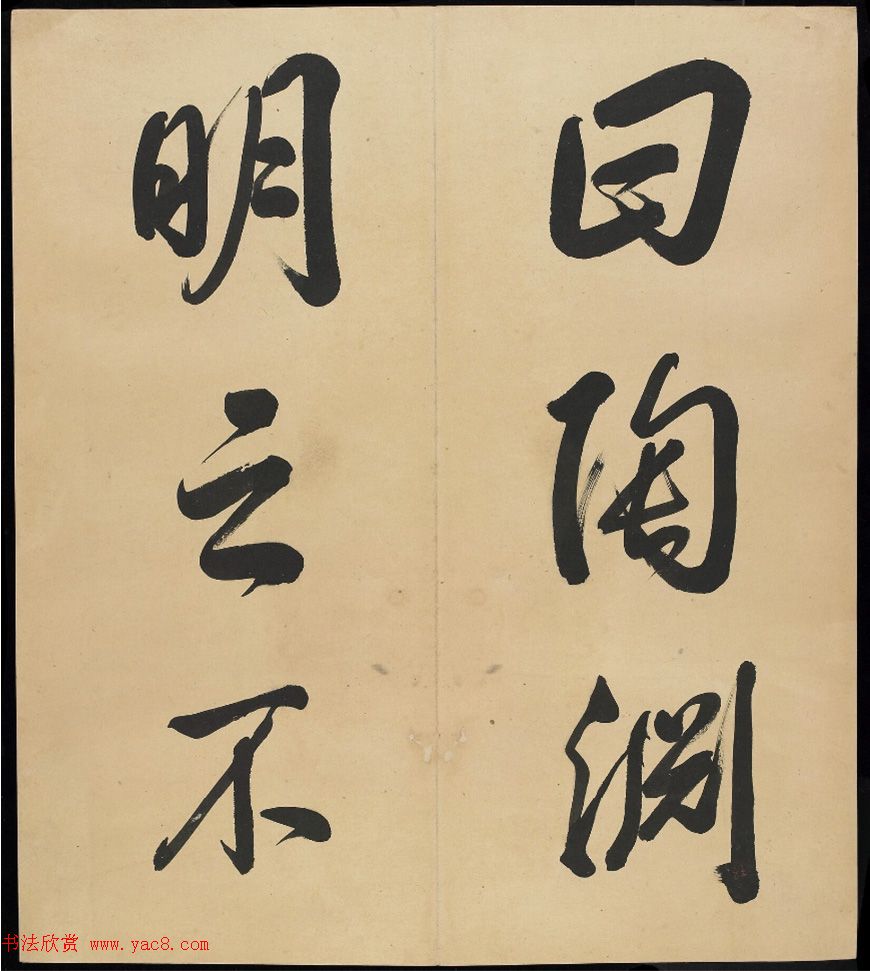 曰陶淵
明云不
书法欣赏 www.yac8.com